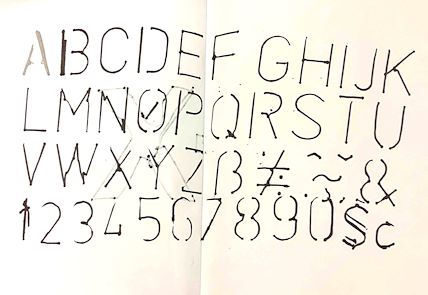 ABCDEF GHIJK
LMNOPQRSTU
VWXYZß &
1234567890$c